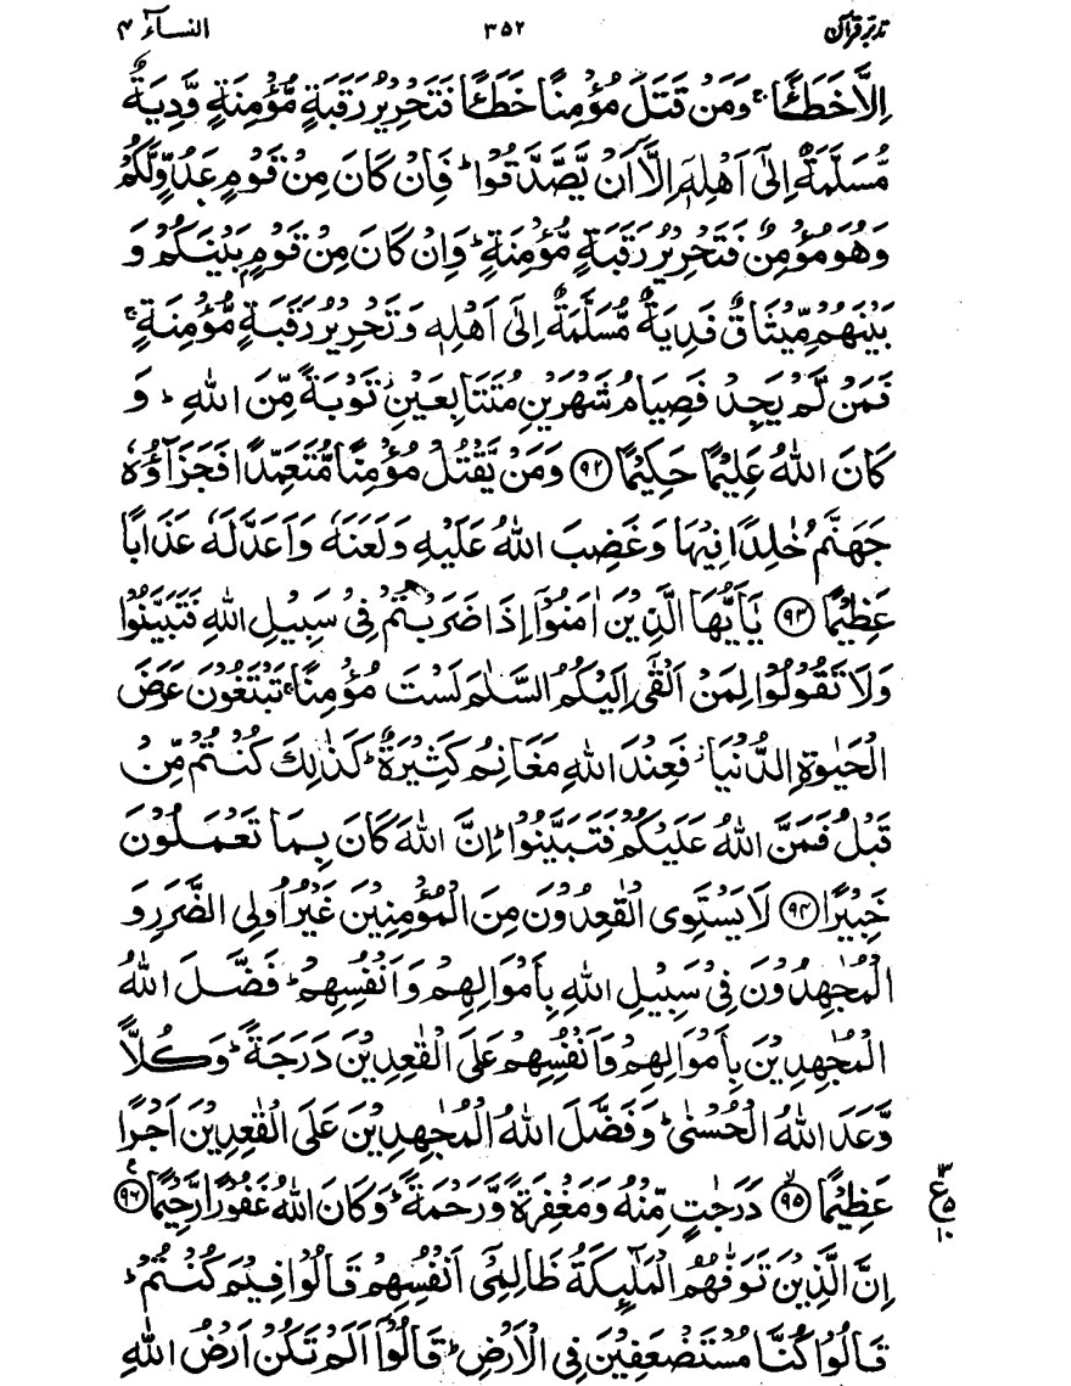 تدبرِ قرآن ۳۵۲ النسآء ۴
اِلَّا خَطَـًٔا ۚ وَمَنْ قَتَلَ مُؤْمِنًا خَطَـًٔا فَتَحْرِيْرُ رَقَبَةٍ مُّؤْمِنَةٍ وَّدِيَةٌ
مُّسَلَّمَةٌ اِلٰٓى اَهْلِهٖٓ اِلَّآ اَنْ يَّصَّدَّقُوْا ؕ فَاِنْ كَانَ مِنْ قَوْمٍ عَدُوٍّ لَّكُمْ
وَهُوَ مُؤْمِنٌ فَتَحْرِيْرُ رَقَبَةٍ مُّؤْمِنَةٍ ؕ وَاِنْ كَانَ مِنْ قَوْمٍۭ بَيْنَكُمْ وَ
بَيْنَهُمْ مِّيْثَاقٌ فَدِيَةٌ مُّسَلَّمَةٌ اِلٰٓى اَهْلِهٖ وَتَحْرِيْرُ رَقَبَةٍ مُّؤْمِنَةٍ ۚ
فَمَنْ لَّمْ يَجِدْ فَصِيَامُ شَهْرَيْنِ مُتَتَابِعَيْنِ ؗ تَوْبَةً مِّنَ اللّٰهِ ؕ وَ
كَانَ اللّٰهُ عَلِيْمًا حَكِيْمًا ﴿۹۲﴾ وَمَنْ يَّقْتُلْ مُؤْمِنًا مُّتَعَمِّدًا فَجَزَآؤُهٗ
جَهَنَّمُ خٰلِدًا فِيْهَا وَغَضِبَ اللّٰهُ عَلَيْهِ وَلَعَنَهٗ وَاَعَدَّ لَهٗ عَذَابًا
عَظِيْمًا ﴿۹۳﴾ يٰٓاَيُّهَا الَّذِيْنَ اٰمَنُوْٓا اِذَا ضَرَبْتُمْ فِيْ سَبِيْلِ اللّٰهِ فَتَبَيَّنُوْا
وَلَا تَقُوْلُوْا لِمَنْ اَلْقٰٓى اِلَيْكُمُ السَّلٰمَ لَسْتَ مُؤْمِنًا ۚ تَبْتَغُوْنَ عَرَضَ
الْحَيٰوةِ الدُّنْيَا ؗ فَعِنْدَ اللّٰهِ مَغَانِمُ كَثِيْرَةٌ ؕ كَذٰلِكَ كُنْتُمْ مِّنْ
قَبْلُ فَمَنَّ اللّٰهُ عَلَيْكُمْ فَتَبَيَّنُوْا ؕ اِنَّ اللّٰهَ كَانَ بِمَا تَعْمَلُوْنَ
خَبِيْرًا ﴿۹۴﴾ لَا يَسْتَوِى الْقٰعِدُوْنَ مِنَ الْمُؤْمِنِيْنَ غَيْرُ اُولِى الضَّرَرِ وَ
الْمُجٰهِدُوْنَ فِيْ سَبِيْلِ اللّٰهِ بِاَمْوَالِهِمْ وَاَنْفُسِهِمْ ؕ فَضَّلَ اللّٰهُ
الْمُجٰهِدِيْنَ بِاَمْوَالِهِمْ وَاَنْفُسِهِمْ عَلَى الْقٰعِدِيْنَ دَرَجَةً ؕ وَكُلًّا
وَّعَدَ اللّٰهُ الْحُسْنٰى ؕ وَفَضَّلَ اللّٰهُ الْمُجٰهِدِيْنَ عَلَى الْقٰعِدِيْنَ اَجْرًا
عَظِيْمًا ﴿۹۵﴾ دَرَجٰتٍ مِّنْهُ وَمَغْفِرَةً وَّرَحْمَةً ؕ وَكَانَ اللّٰهُ غَفُوْرًا رَّحِيْمًا ﴿۹۶﴾
اِنَّ الَّذِيْنَ تَوَفّٰىهُمُ الْمَلٰٓئِكَةُ ظَالِمِيْٓ اَنْفُسِهِمْ قَالُوْا فِيْمَ كُنْتُمْ ؕ
قَالُوْا كُنَّا مُسْتَضْعَفِيْنَ فِى الْاَرْضِ ؕ قَالُوْٓا اَلَمْ تَكُنْ اَرْضُ اللّٰهِ
۱۳
ع ۵
۱۰